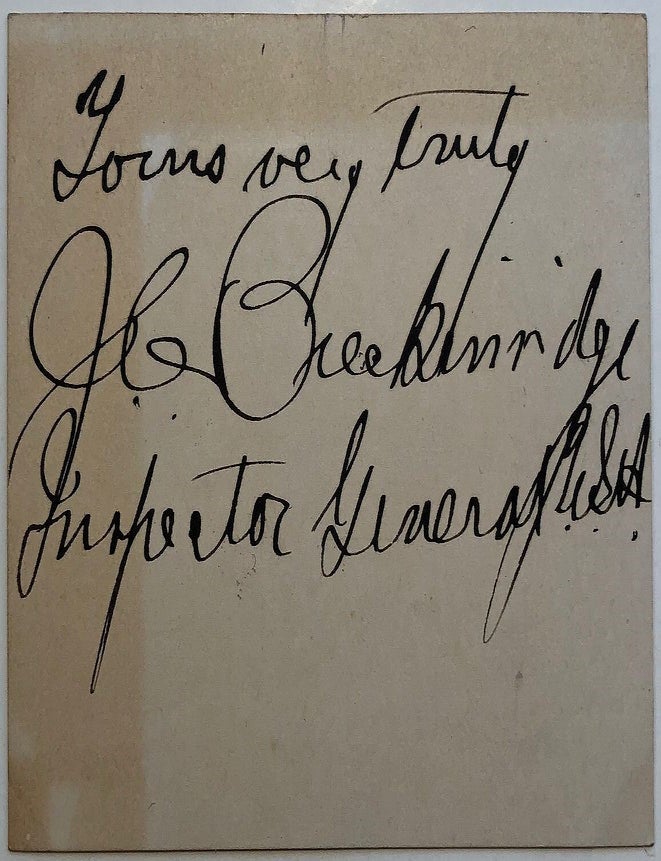 Yours very truly
J. C. Breckinridge
Inspector General U.S.A.